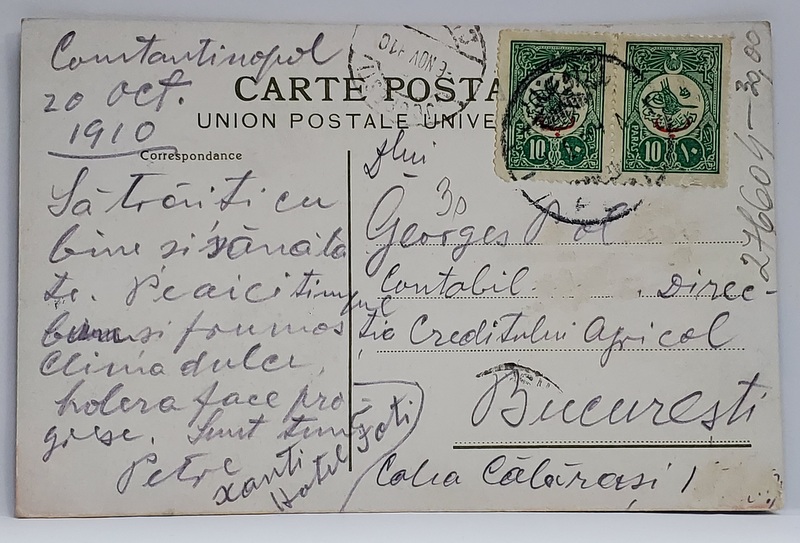 Constantinopol
20 Oct.
1910
CARTE POSTA
UNION POSTALE UNIVE
Correspondance
Să trăiți cu
bine și sănăta
te. Pe aici timpul
bun și frumos
Clima dulce,
holera face pro-
grese. Sunt
Petre
Hotel
Dlui
30
Georges Pol
Contabil. Direc-
ția Creditului Agricol
București
Calea Călărași 1
10 PARAS ١٠
10 PARAS ١٠
6 NOV 910
276604-30,00